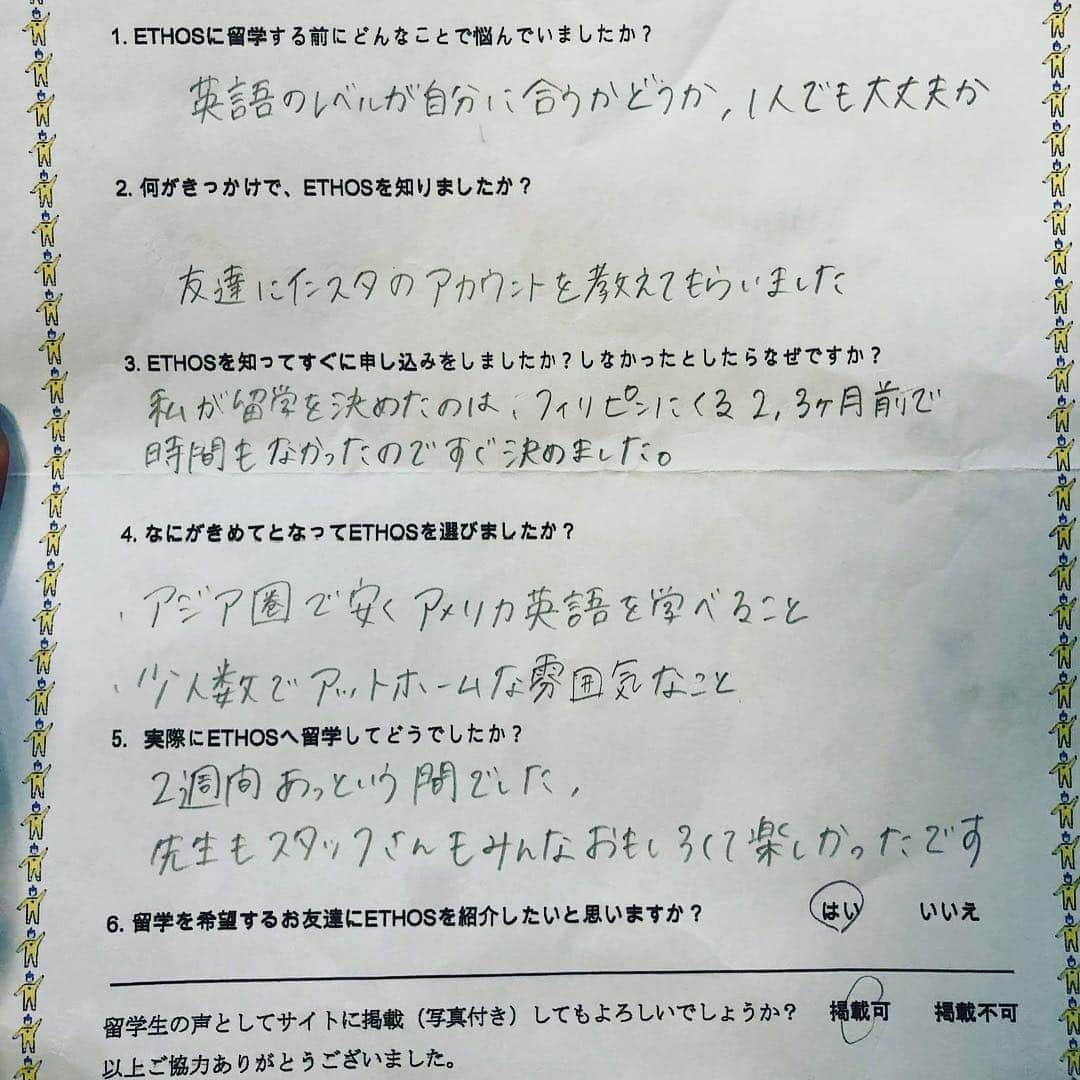 1. ETHOSに留学する前にどんなことで悩んでいましたか？
英語のレベルが自分に合うかどうか, 1人でも大丈夫か
2. 何がきっかけで、ETHOSを知りましたか？
友達にインスタのアカウントを教えてもらいました
3. ETHOSを知ってすぐに申し込みをしましたか？しなかったとしたらなぜですか？
私が留学を決めたのは、フィリピンにくる2,3ヶ月前で
時間もなかったのですぐ決めました。
4. なにがきめてとなってETHOSを選びましたか？
、アジア圏で安くアメリカ英語を学べること
、少人数でアットホームな雰囲気なこと
5. 実際にETHOSへ留学してどうでしたか？
2週間あっという間でした,
先生もスタッフさんもみんなおもしろくて楽しかったです
6. 留学を希望するお友達にETHOSを紹介したいと思いますか？ はい いいえ
留学生の声としてサイトに掲載（写真付き）してもよろしいでしょうか？ 掲載可 掲載不可
以上ご協力ありがとうございました。